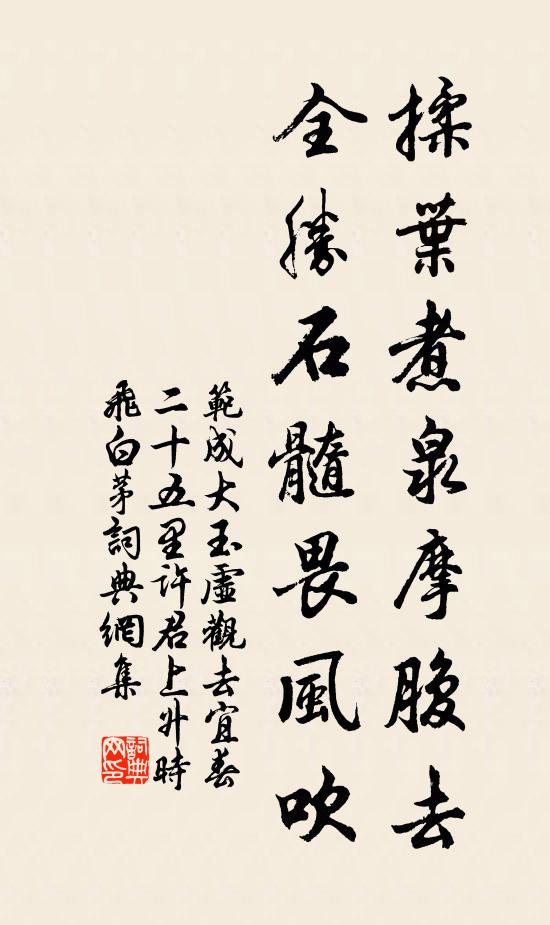 揉葉煮泉摩腹去
全勝石髓畏風吹
範成大玉虛觀去宜春
二十五里許君上升時
飛白茅詞典網集
詞典网印